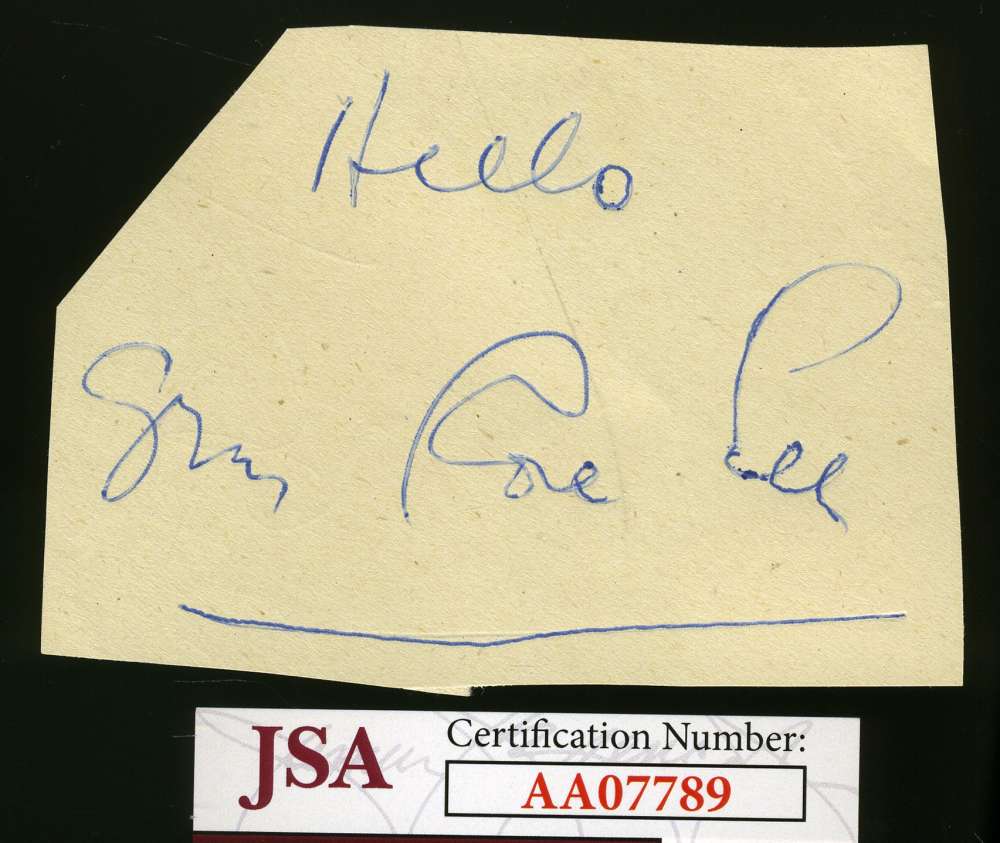 Hello
Gypsy Rose Lee
JSA
Certification Number:
AA07789